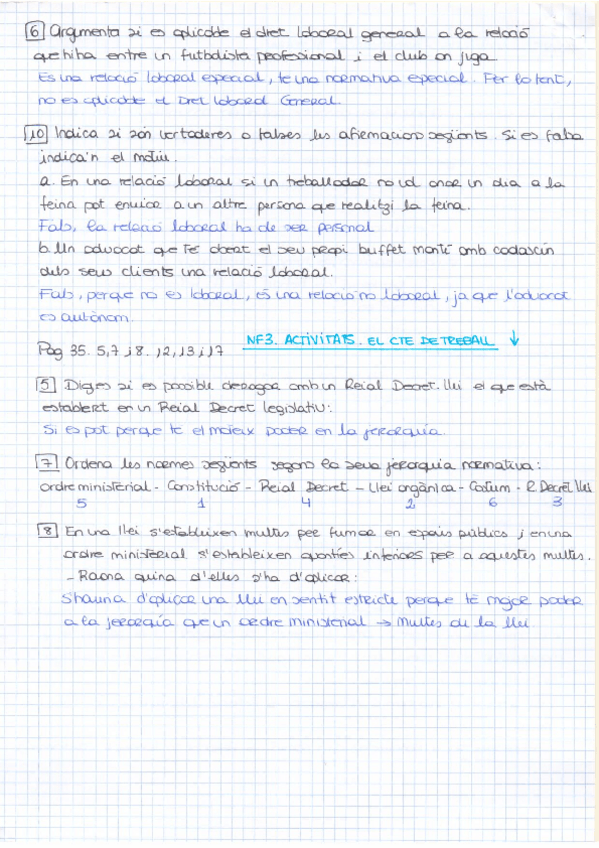 6 Argumenta si es aplicable el dret laboral general a la relació
que hi ha entre un futbolista professional i el club on juga.
Es una relació laboral especial, te una normativa especial. Per lo tant,
no es aplicable el Dret laboral General.
10 Indica si són vertaderes o falses les afirmacions següents. Si es falsa
indica'n el motiu.
a. En una relació laboral si un treballador no vol anar un dia a la
feina pot enviar a un altre persona que realitzi la feina.
Fals, la relació laboral ha de ser personal
b. Un advocat que té obert el seu propi buffet manté amb cadascun
dels seus clients una relació laboral.
Fals, perque no es laboral, és una relacio no laboral, ja que l'advocat
es autònom.
NF3. ACTIVITATS. EL CTE DE TREBALL ↓
Pàg 35. 5, 7 i 8. 12, 13 i 17
5 Digues si es possible derogar amb un Reial Decret. llei el que està
establert en un Reial Decret legislatiu:
Si es pot perque te el mateix poder en la jerarquia.
7 Ordena les normes següents segons la seva jerarquia normativa:
ordre ministerial - Constitució - Reial Decret - Llei orgànica - Costum - R Decret llei
5 1 4 2 6 3
8 En una llei s'estableixen multes per fumar en espais públics i en una
ordre ministerial s'estableixen quanties inferiors per a aquestes multes.
- Raona quina d'elles s'ha d'aplicar:
S'hauria d'aplicar una llei en sentit estricte perque té major poder
a la jerarquía que un ordre ministerial → Multes de la llei